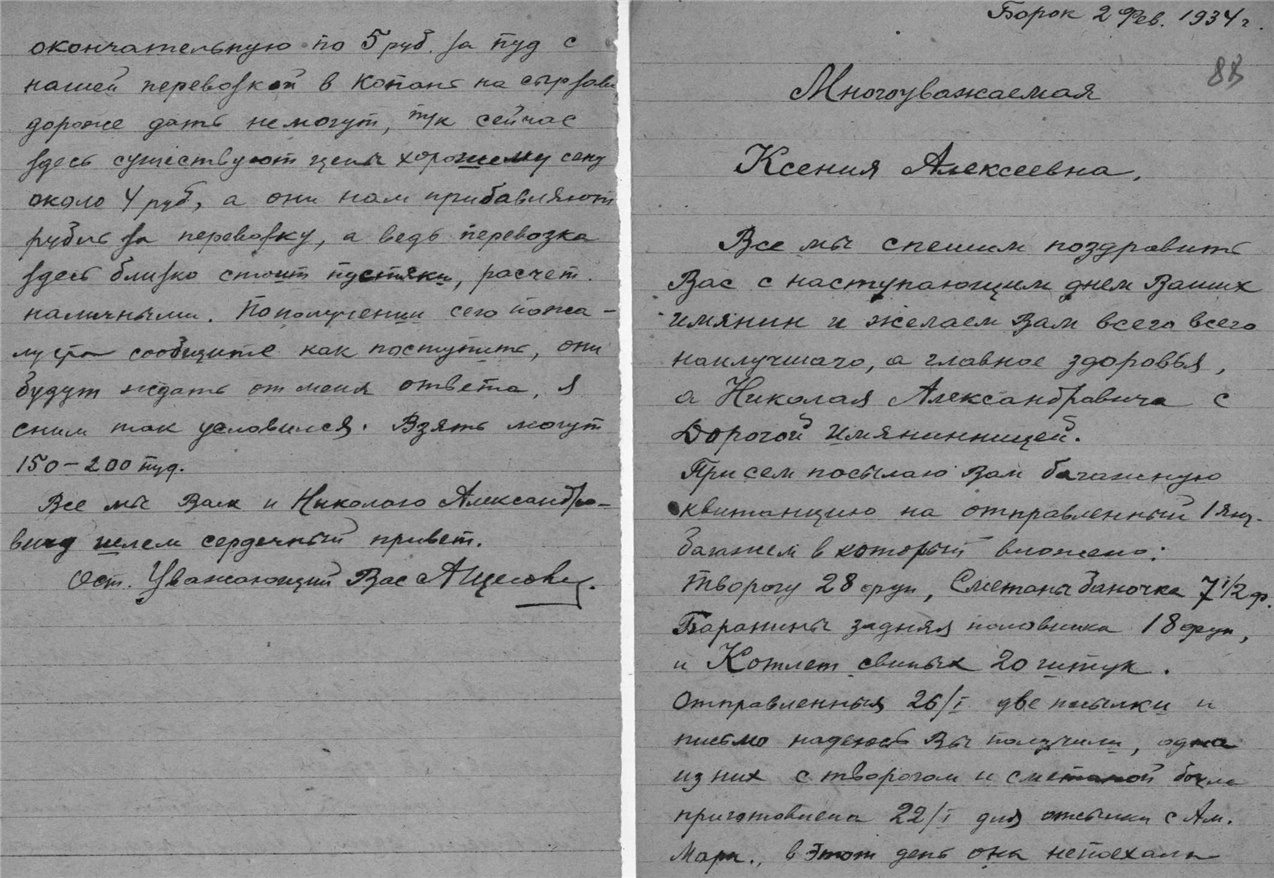 окончательную по 5 руб. за пуд с
нашей перевозкой в Копань на сырзав.
дороже дать немогут, тук сейчас
здесь существуют цены хорошему сену
около 4 руб, а они нам прибавляют
рубль за перевозку, а ведь перевозка
здесь близко стоит пустяки, расчет
наличными. Пополучении сего пожа-
луста сообщите как поступить, они
будут ждать от меня ответа, я
сним так условился. Взять могут
150-200 пуд.
Все мы Вам и Николаю Александро-
вичу шлем сердечный привет.
Ост. Уважающий Вас
Борок 2 Фев. 1934 г.
88
Многоуважаемая
Ксения Алексеевна,
Все мы спешим поздравить
Вас с наступающим днем Ваших
имянин и желаем Вам всего всего
наилучшаго, а главное здоровья,
а Николая Александравича с
Дорогой Имянинницей.
При сем посылаю Вам багажную
квитанцию на отправленный 1 янв.
багажем в который вложено:
творогу 28 фун, Сметаны баночка 7 1/2 ф.
Баранины задняя половинка 18 фун,
и Котлет свиных 20 штук.
Отправленныя 26/I две посылки и
письмо надеюсь Вы получили, одна
из них с творогом и сметаной была
приготовлена 22/I для отсылки с Ам.
Марк., в этот день она непоехала